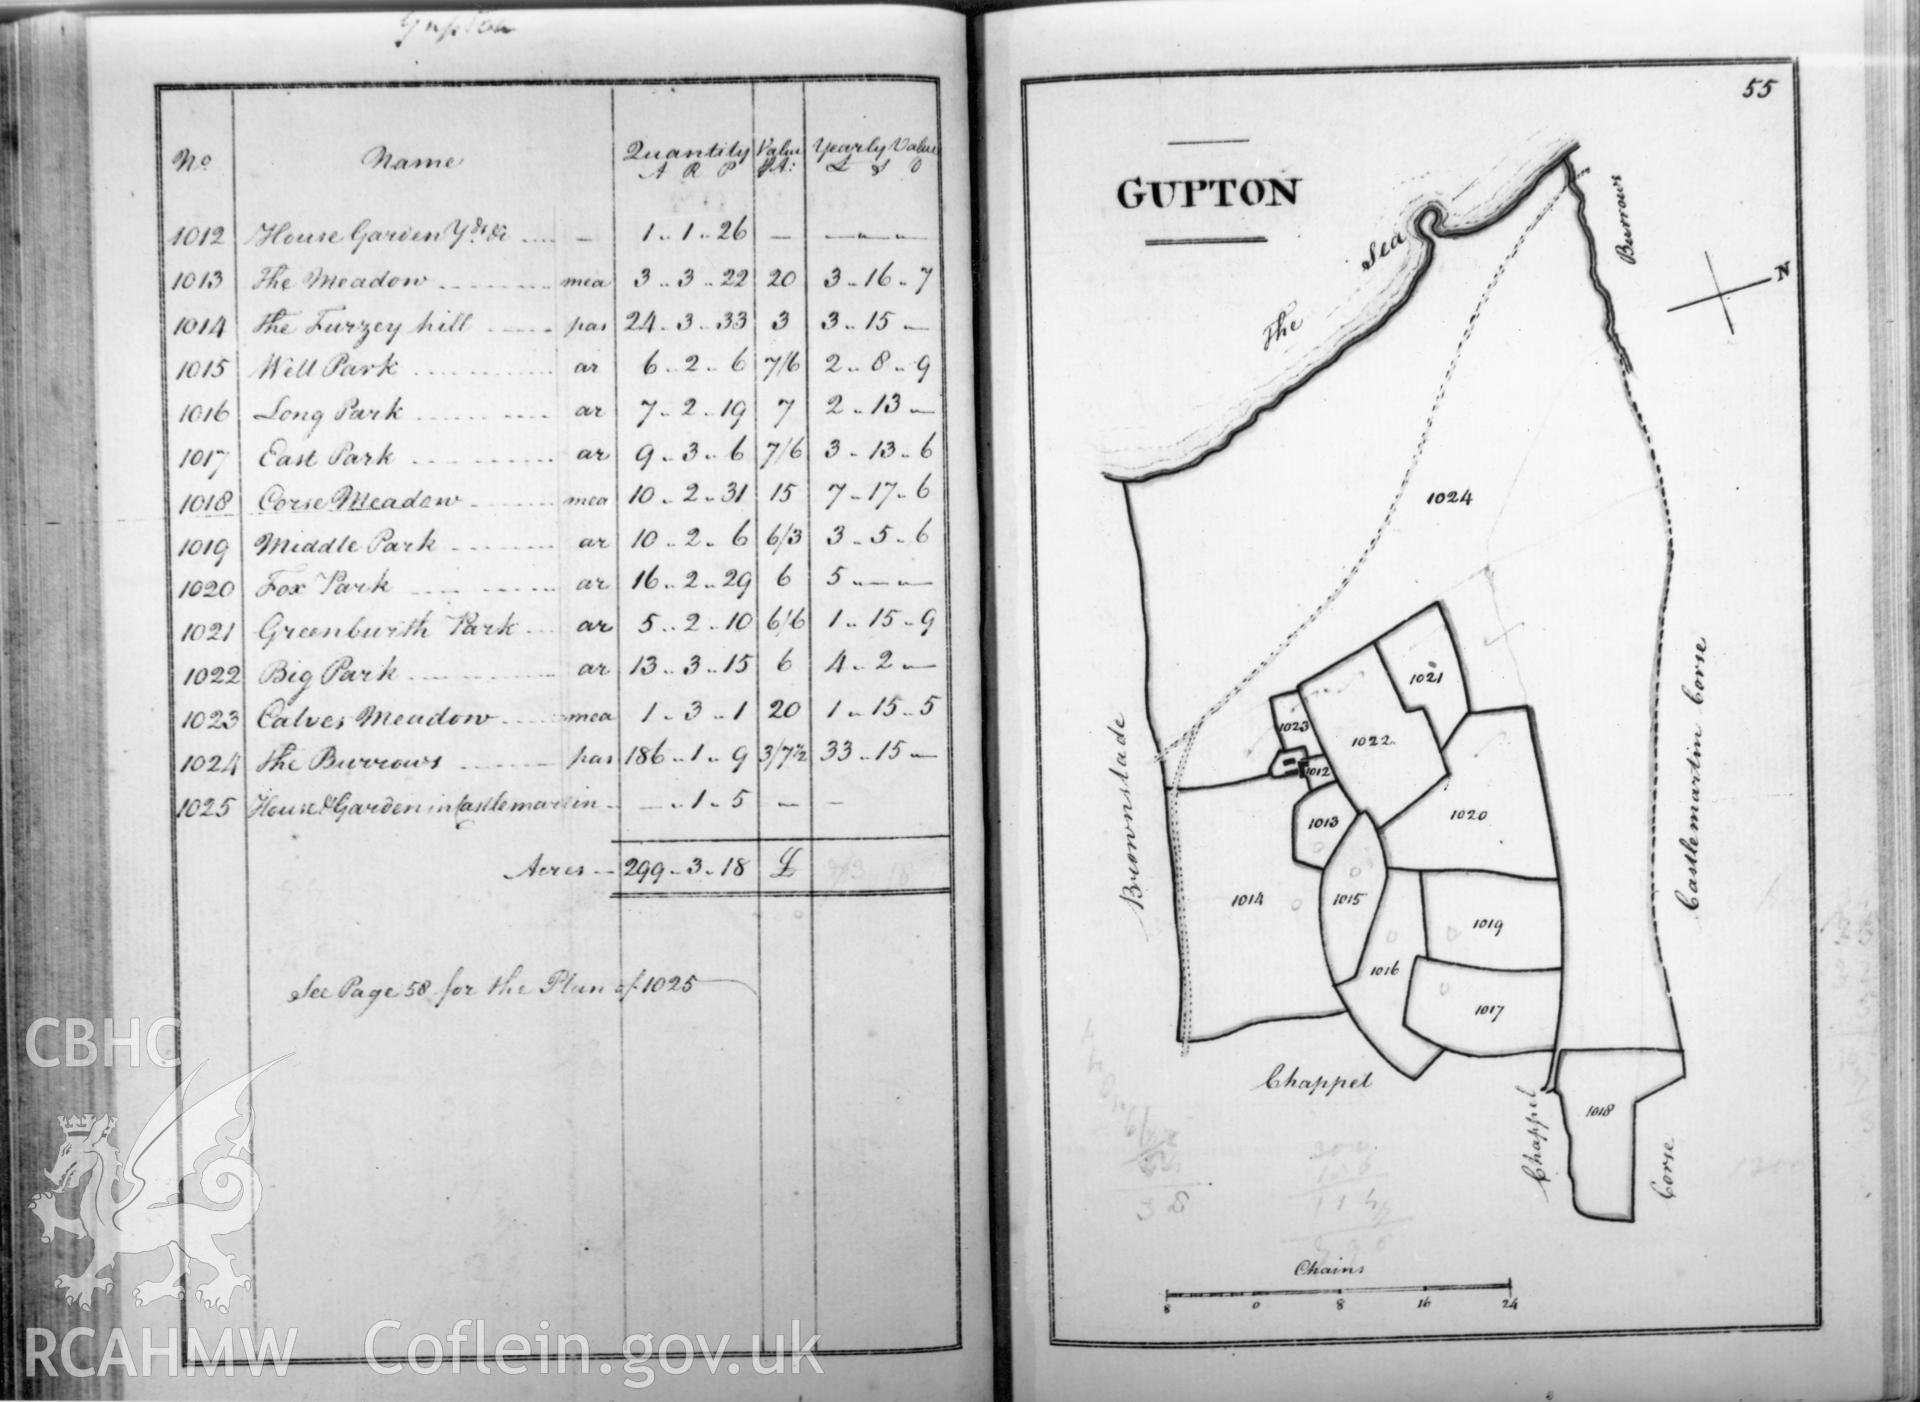 Gupton
No Name Quantity Value Yearly Value
A R P pA: £ s D
1012 House Garden Yds &c .... - 1 .. 1 .. 26 — — .. — .. —
1013 The Meadow mea 3 .. 3 .. 22 20 3 .. 16 .. 7
1014 The Furzey hill pas 24 .. 3 .. 33 3 3 .. 15 .. —
1015 Well Park ar 6 .. 2 .. 6 7/6 2 .. 8 .. 9
1016 Long Park ar 7 .. 2 .. 19 7 2 .. 13 .. —
1017 East Park ar 9 .. 3 .. 6 7/6 3 .. 13 .. 6
1018 Corse Meadow mea 10 .. 2 .. 31 15 7 .. 17 .. 6
1019 Middle Park ar 10 .. 2 .. 6 6/3 3 .. 5 .. 6
1020 Fox Park ar 16 .. 2 .. 29 6 5 .. — .. —
1021 Greenburth Park ar 5 .. 2 .. 10 6/6 1 .. 15 .. 9
1022 Big Park ar 13 .. 3 .. 15 6 4 .. 2 .. —
1023 Calves Meadow mea 1 .. 3 .. 1 20 1 .. 15 .. 5
1024 The Burrows pas 186 .. 1 .. 9 3/7½ 33 .. 15 .. —
1025 House & Garden in Castlemartin - — .. 1 .. 5 — —
Acres — 299 .. 3 .. 18 £
See Page 58 for the Plan of 1025
CBHC
RCAHMW Coflein.gov.uk
55
GUPTON
The Sea
Burrows
N
1024
Brownslade
Castlemartin Corse
1021
1023
1022
1012
1013
1020
1014
1015
1019
1016
1017
Chappel
Chappel
1018
Corse
Chains
8 0 8 16 24